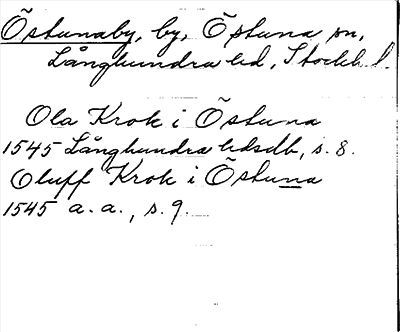 Östunaby, by, Östuna sn,
Långhundra hd, Stockh. l.
Ola Krok i Östuna
1545 Långhundra hdsdb, s. 8.
Oluff Krok i Östuna
1545 a. a., s. 9.